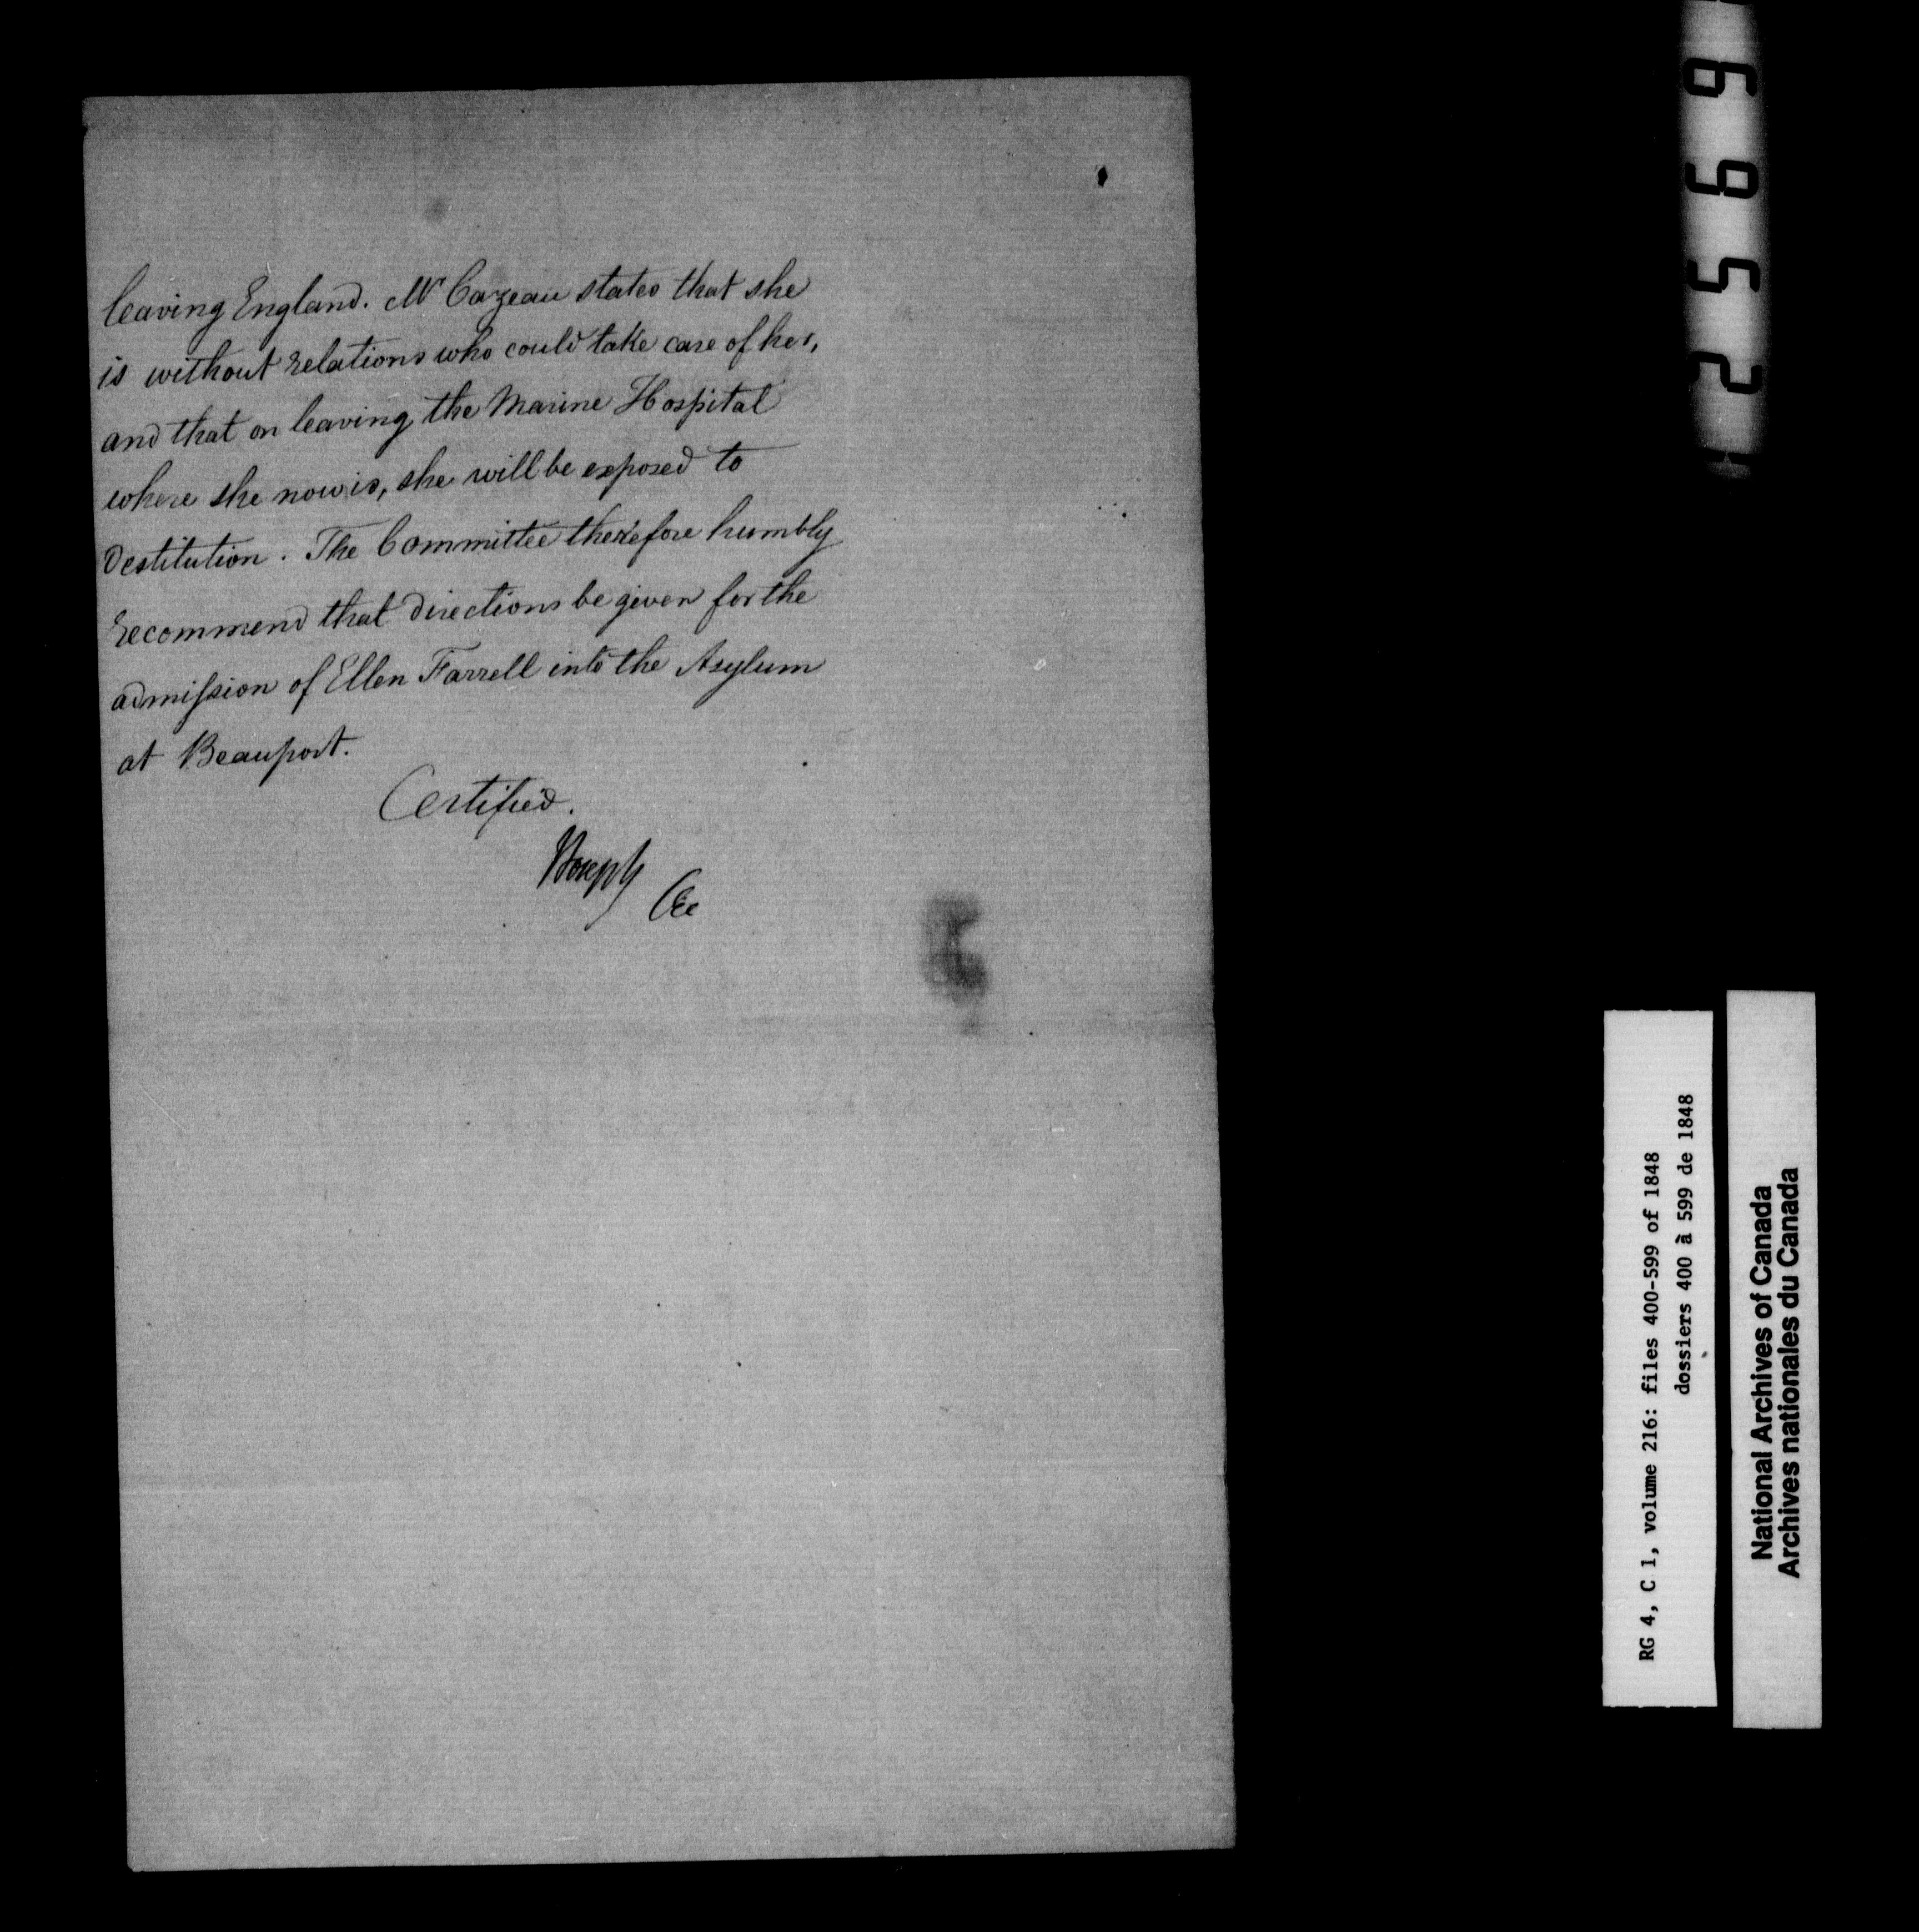 leaving England. Mr Cazeau states that she
is without relations who could take care of her,
and that on leaving the Marine Hospital
where she now is, she will be exposed to
destitution. The Committee therefore humbly
recommend that directions be given for the
admission of Ellen Farrell into the Asylum
at Beauport.
Certified.
Joseph
CEC
2569
RG 4, C 1, volume 216: files 400-599 of 1848
dossiers 400 à 599 de 1848
National Archives of Canada
Archives nationales du Canada